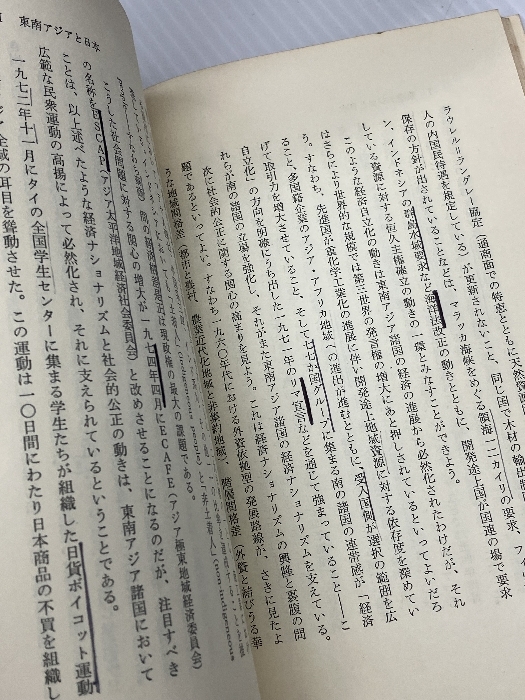 ラウレル・ラングレー協定(通商面での特恵とともに天然資源
人の内国民待遇を規定している)が更新されないこと、同じ国で木材の輸出
保存の方針が出されていることなどは、マラッカ海峡をめぐる領海一二カイリの要求、フィ
ン、インドネシアの群島水域要求など海洋法改正の動きとともに、開発途上国が国連の場で要求
している資源に対する恒久主権確立の動きの一環とみなすことができよう。
このような経済自立化の動きは東南アジア諸国の経済の進展から必然化されたわけだが、それ
はさらにより世界的な規模では第三世界の発言権の増大にあと押しされているといってよいだろ
う。すなわち、先進国が重化学工業化の進展に伴い開発途上地域資源に対する依存度を深めてい
ること、多国籍企業のアジア・アフリカ地域への進出が進むとともに、受入国側が選択の範囲を広
げて取引力を増大させていること、そして七七か国グループに集まる南の諸国の連帯感が「経済
自立化」の方向を明確にうち出した一九七一年のリマ宣言などを通じて強まっていること——こ
れらが南の諸国の立場を強化し、それがまた東南アジア諸国の経済ナショナリズムを支えている。
次に社会的公正に関する関心の高まりを見よう。これは経済ナショナリズムの興隆と裏腹の問
題であるといってよい。すなわち、一九六〇年代における外資依拠型の発展路線が、さきに見たよ
うな地域間格差(都市と農村、農業近代化地域と非
東南アジアと日本
間の格差是正は現政権の最大の課題である。
こうした社会問題に対する関心の増大が一九七四年四月にECAFE(アジア極東地域経済委員会)
の名称をESCAP(アジア太平洋地域経済社会委員会)と改めさせることになるのだが、注目すべき
ことは、以上述べたような経済ナショナリズムと社会的公正の動きは、東南アジア諸国において
広範な民衆運動の高揚によって必然化され、それに支えられているということである。
一九七二年十一月にタイの全国学生センターに集まる学生たちが組織した日貨ボイコット運動
全域の耳目を聳動させた。この運動は一〇日間にわたり日本商品の不買を組織し